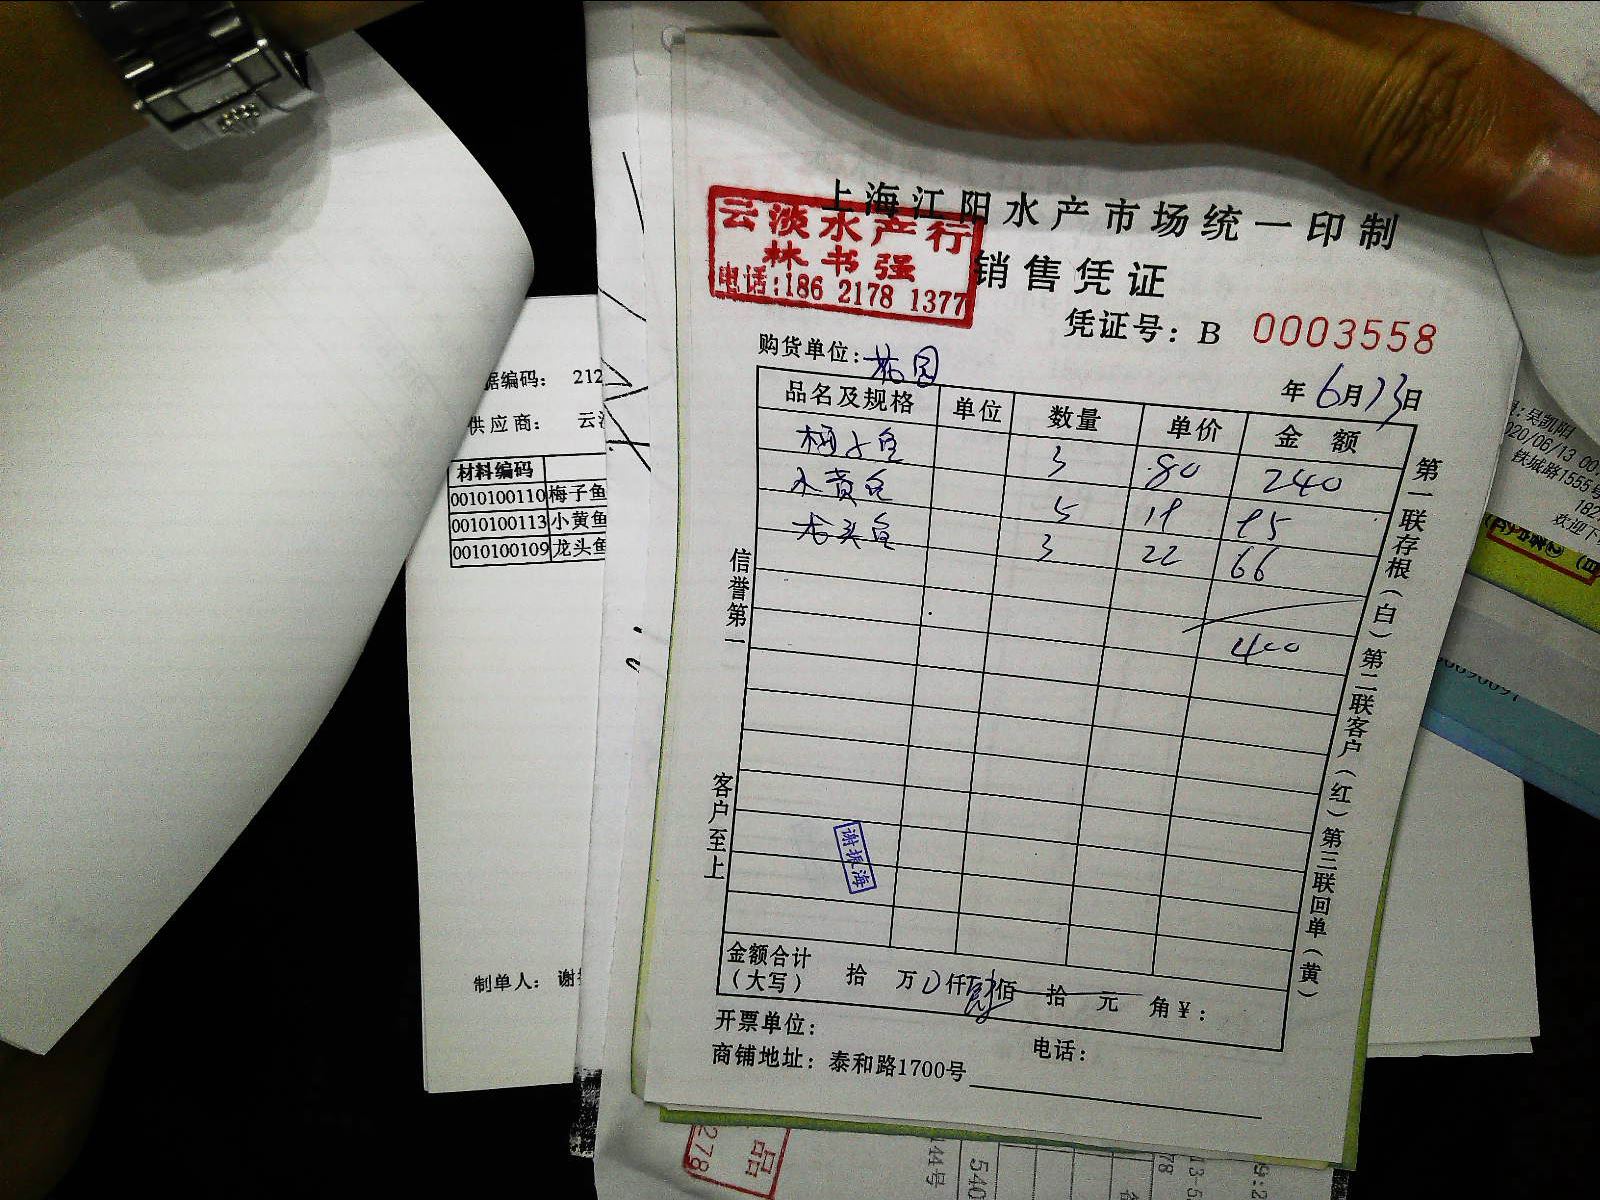 上海江阳水产市场统一印制
云淡水产行
林书强
电话:186 2178 1377
销售凭证
凭证号: B 0003558
购货单位: 花园
年6月13日
品名及规格 单位 数量 单价 金额
梅子鱼 3 80 240
小黄鱼 5 19 95
龙头鱼 3 22 66
400
信誉第一
客户至上
第一联存根(白)第二联客户(红)第三联回单(黄)
谢振海
金额合计
(大写) 拾 万 0仟 肆佰 拾 元 角 ¥:
开票单位: 电话:
商铺地址: 泰和路1700号
据编码: 212
供应商: 云
材料编码
0010100110 梅子鱼
0010100113 小黄鱼
0010100109 龙头鱼
制单人: 谢
吴凯阳
020/06/13 00
铁城路1555号
182
欢迎下
278
品
44号
540
78
13-5